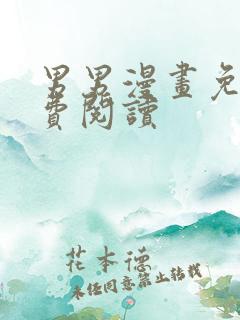 男男漫畫免
費閱讀
花本德
未经同意禁止转载